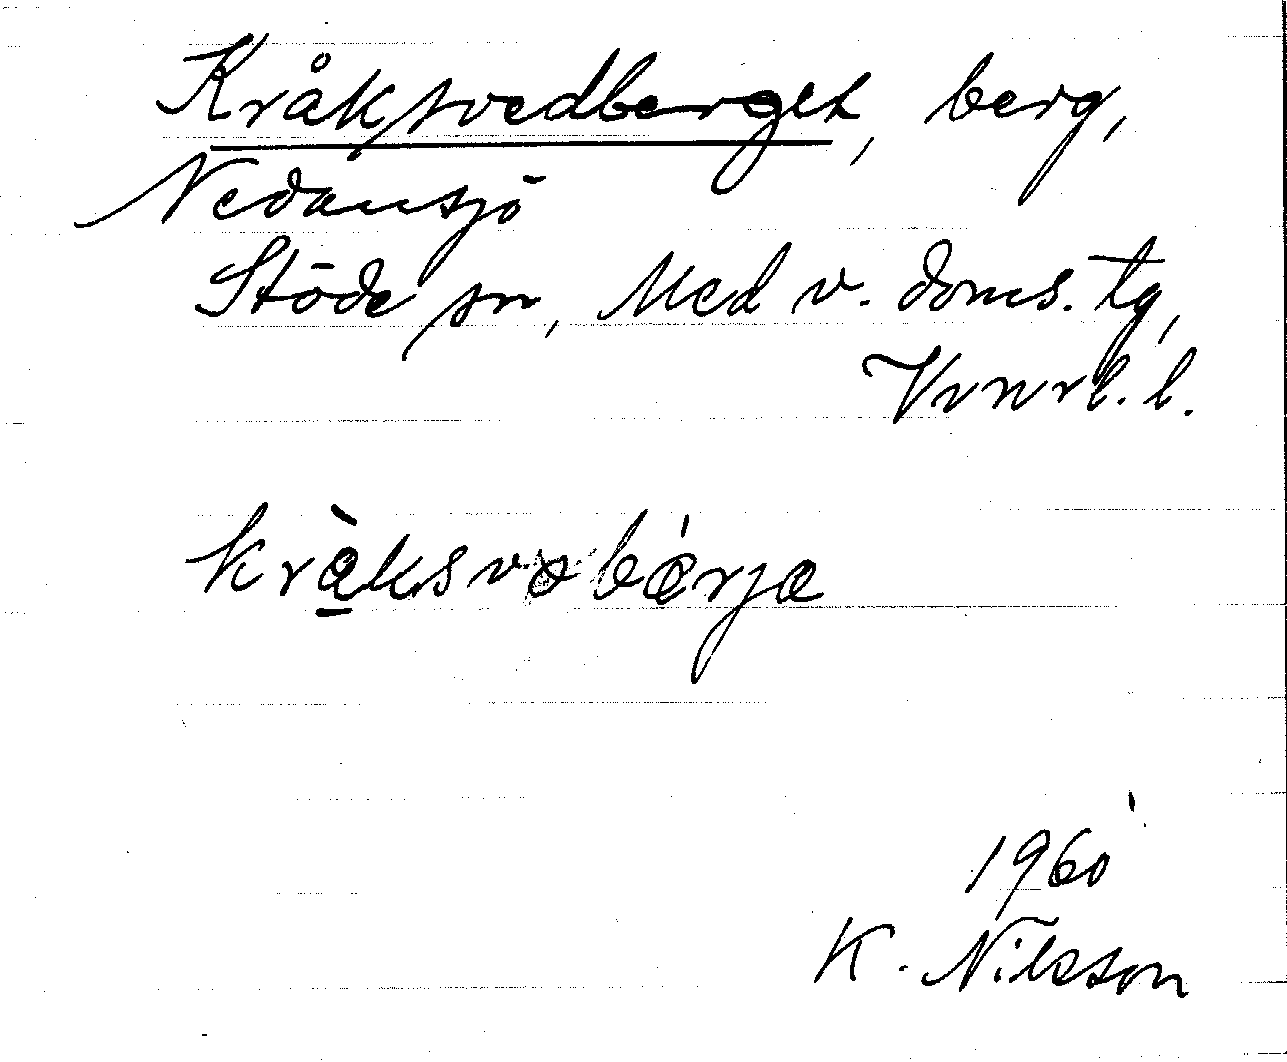 Kråksvedberget, berg,
Nedansjö
Stöde sn, Med v. doms. tg,
Vrnrl. l.
kràksvəbǽrjæ
1960
K. Nilsson